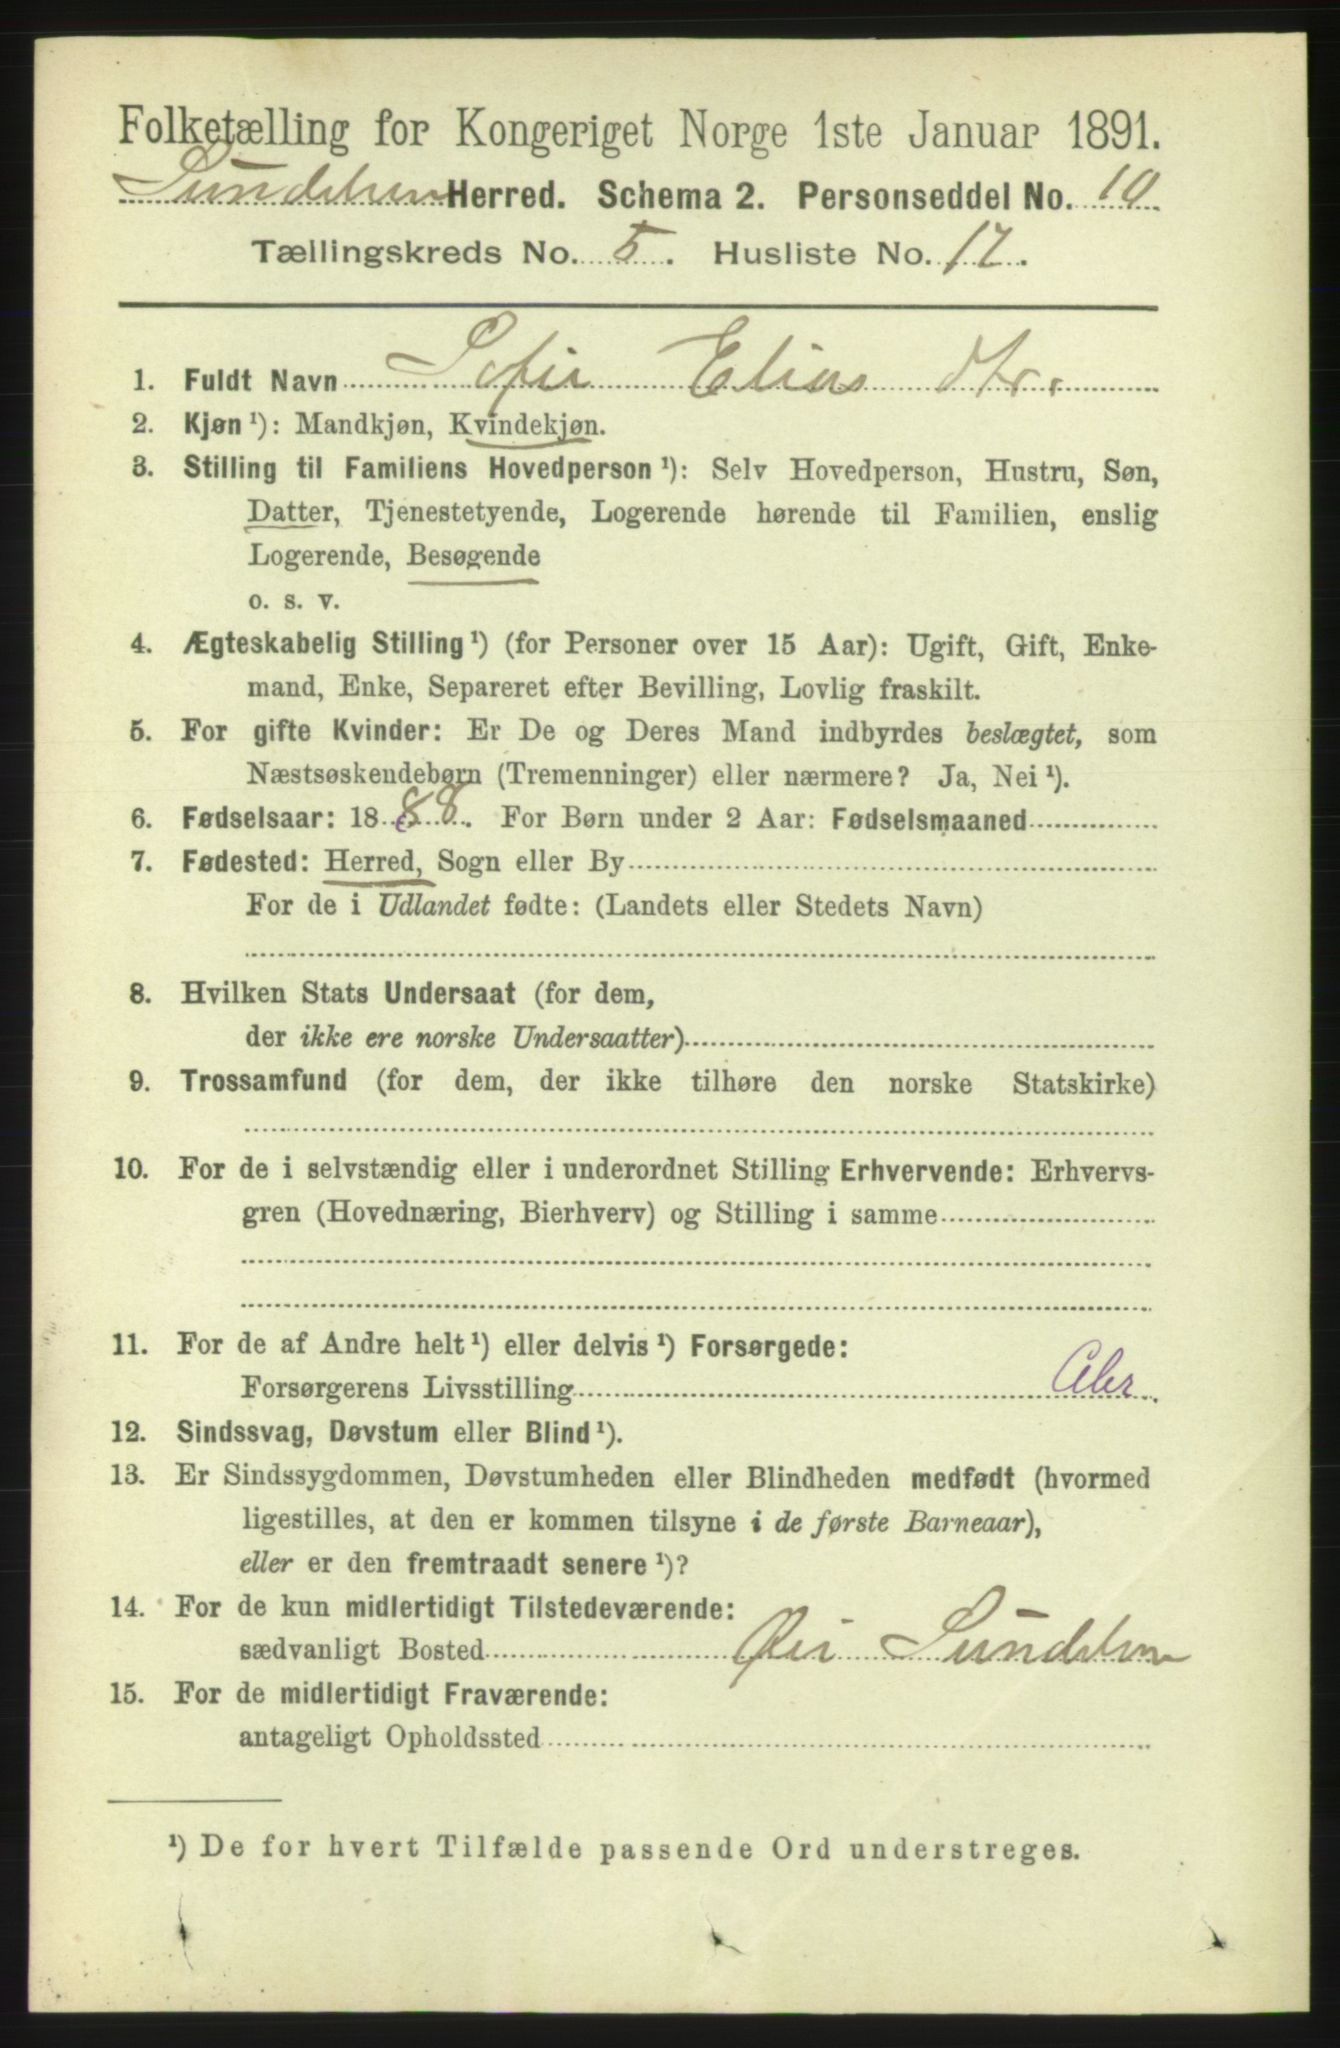 Folketælling for Kongeriget Norge 1ste Januar 1891.
Sundalen Herred. Schema 2. Personseddel No. 10
Tællingskreds No. 5. Husliste No. 17.
1. Fuldt Navn Sofie Elias dtr.
2. Kjøn ¹): Mandkjøn, Kvindekjøn.
3. Stilling til Familiens Hovedperson ¹): Selv Hovedperson, Hustru, Søn,
Datter, Tjenestetyende, Logerende hørende til Familien, enslig
Logerende, Besøgende
o. s. v.
4. Ægteskabelig Stilling ¹) (for Personer over 15 Aar): Ugift, Gift, Enke-
mand, Enke, Separeret efter Bevilling, Lovlig fraskilt.
5. For gifte Kvinder: Er De og Deres Mand indbyrdes beslægtet, som
Næstsøskendebørn (Tremenninger) eller nærmere? Ja, Nei ¹).
6. Fødselsaar: 1888. For Børn under 2 Aar: Fødselsmaaned
7. Fødested: Herred, Sogn eller By
For de i Udlandet fødte: (Landets eller Stedets Navn)
8. Hvilken Stats Undersaat (for dem,
der ikke ere norske Undersaatter)
9. Trossamfund (for dem, der ikke tilhøre den norske Statskirke)
10. For de i selvstændig eller i underordnet Stilling Erhvervende: Erhvervs-
gren (Hovednæring, Bierhverv) og Stilling i samme
11. For de af Andre helt ¹) eller delvis ¹) Forsørgede:
Forsørgerens Livsstilling
12. Sindssvag, Døvstum eller Blind ¹).
13. Er Sindssygdommen, Døvstumheden eller Blindheden medfødt (hvormed
ligestilles, at den er kommen tilsyne i de første Barneaar),
eller er den fremtraadt senere ¹)?
14. For de kun midlertidigt Tilstedeværende:
sædvanligt Bosted Øie Sundalen
15. For de midlertidigt Fraværende:
antageligt Opholdssted
¹) De for hvert Tilfælde passende Ord understreges.